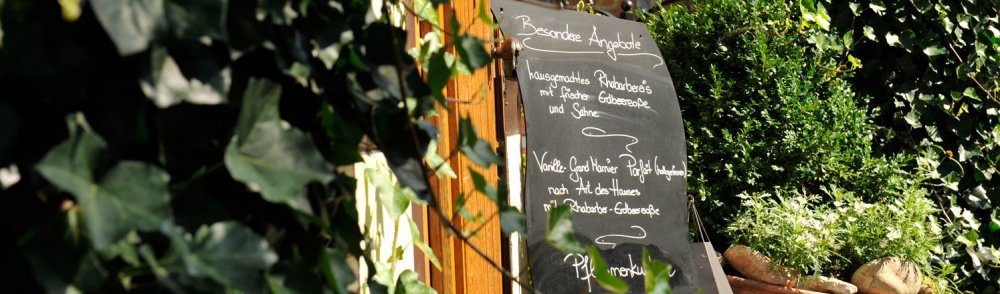 Besondere Angebote
hausgemachtes Rhabarbereis
mit frischer Erdbeersoße
und Sahne
Vanille-Grand Marnier Parfait (halbgefroren)
nach Art des Hauses
mit Rhabarber-Erdbeersoße